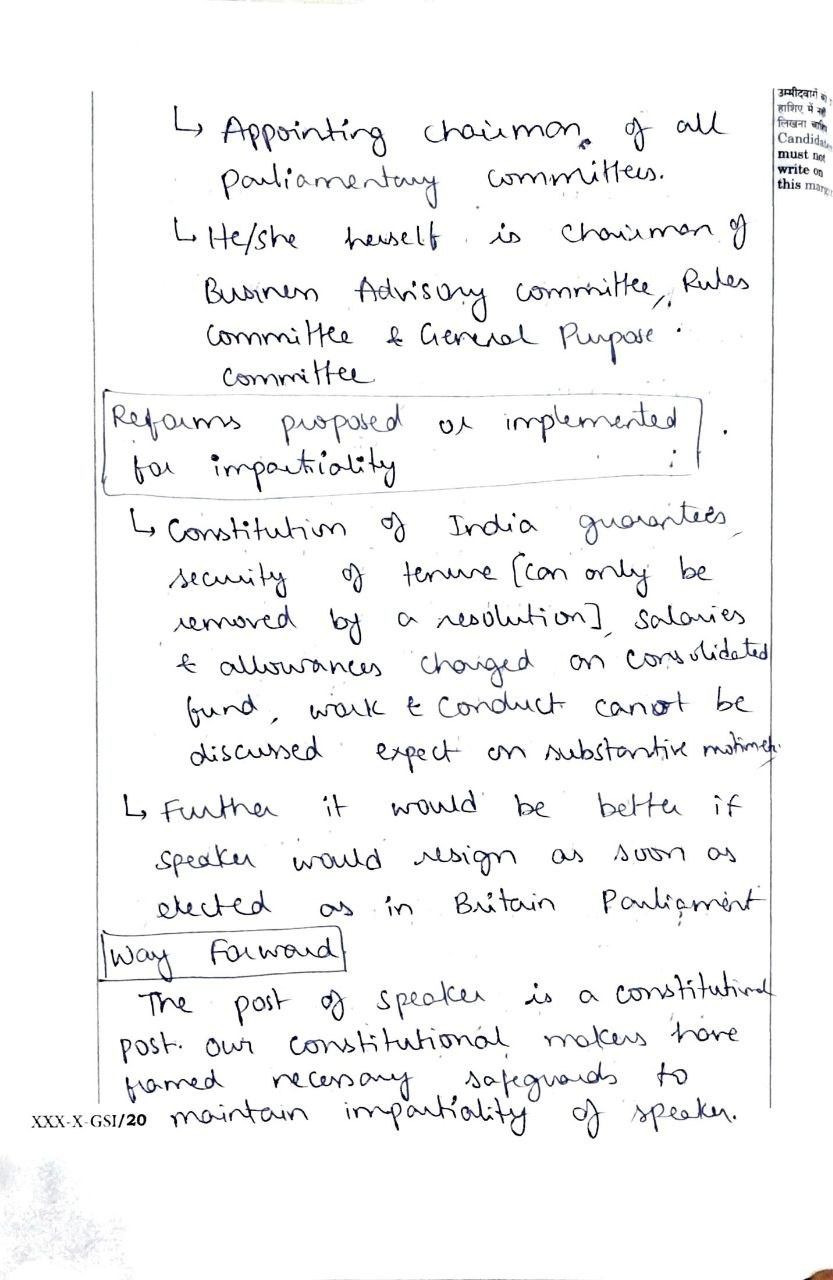 ↳ Appointing chairman of all
parliamentary committees.
↳ He/she herself is chairman of
Business Advisory committee, Rules
committee & General Purpose
committee
Reforms proposed or implemented
for impartiality
↳ Constitution of India guarantees
security of tenure [can only be
removed by a resolution], salaries
& allowances charged on consolidated
fund, work & conduct cannot be
discussed expect on substantive motion
↳ Further it would be better if
speaker would resign as soon as
elected as in Britain Parliament
Way Forward
The post of speaker is a constitutional
post. our constitutional makers have
framed necessary safeguards to
maintain impartiality of speaker.
XXX-X-GSI/20
उम्मीदवारों को
हाशिए में नहीं
लिखना चाहिए
Candidates
must not
write on
this margin